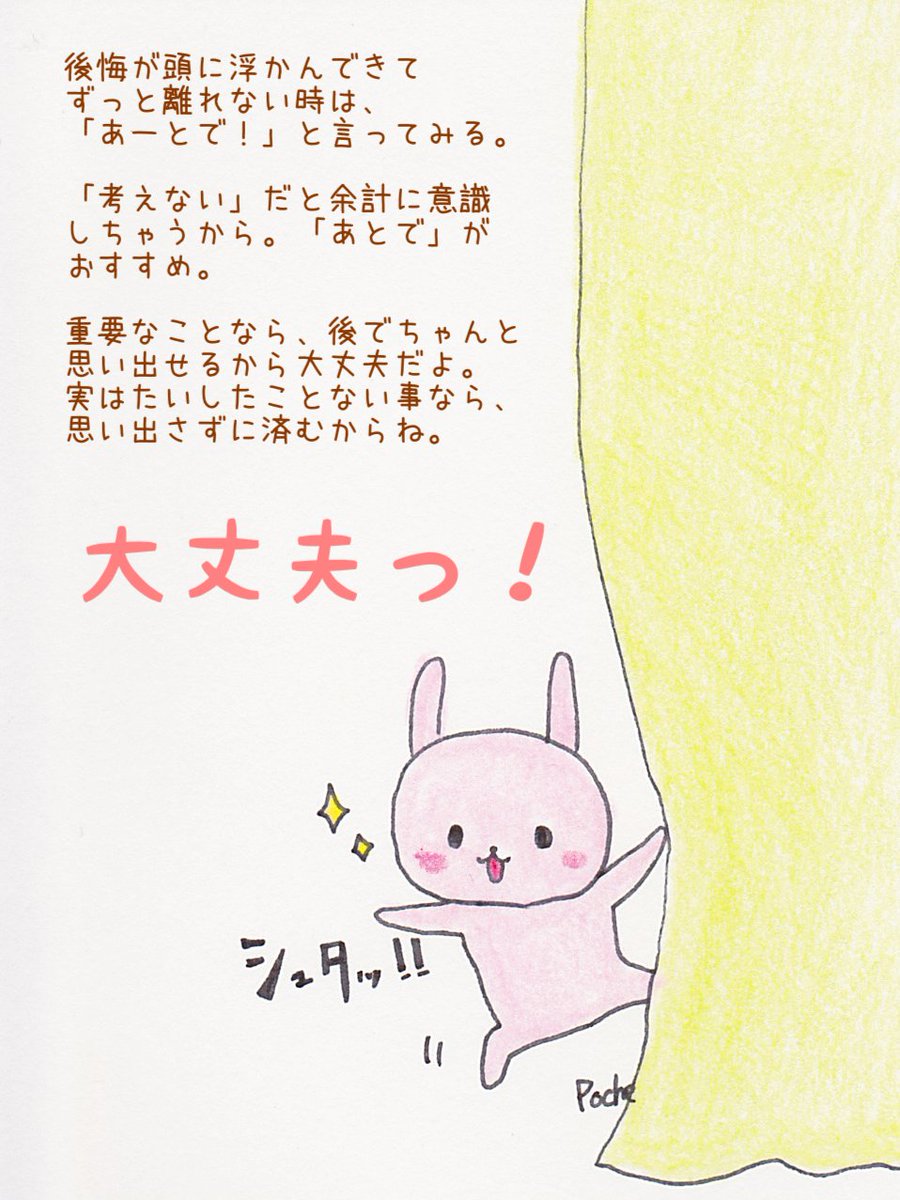 後悔が頭に浮かんできて
ずっと離れない時は、
「あーとで！」と言ってみる。
「考えない」だと余計に意識
しちゃうから。「あとで」が
おすすめ。
重要なことなら、後でちゃんと
思い出せるから大丈夫だよ。
実はたいしたことない事なら、
思い出さずに済むからね。
大丈夫っ！
シュタッ!!
Poche